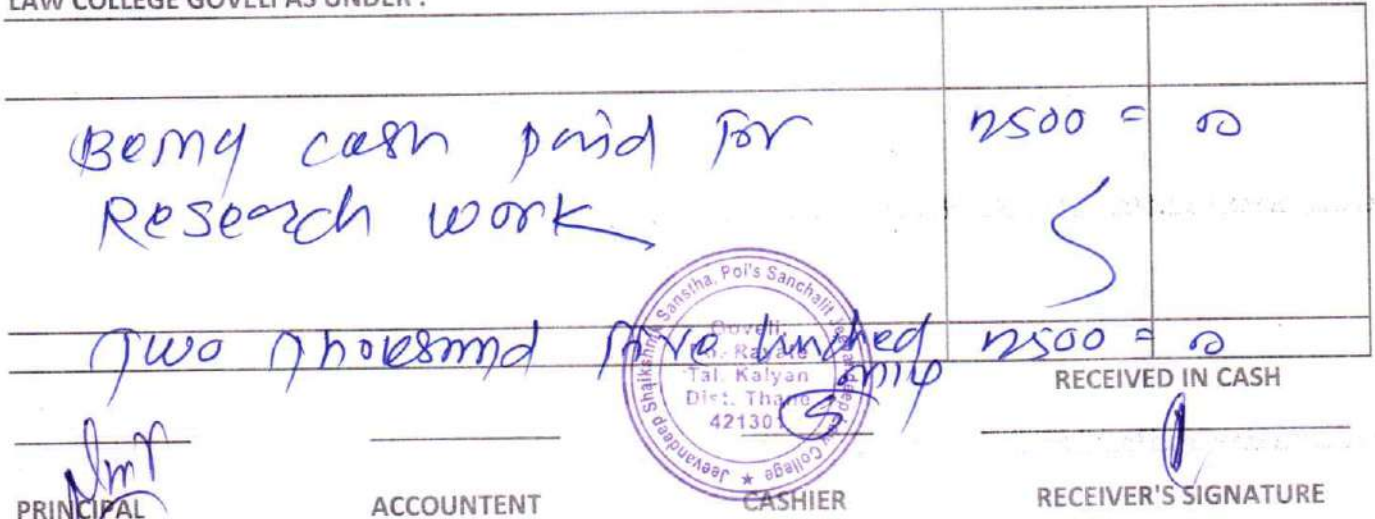 LAW COLLEGE GOVELI AS UNDER :
Being cash paid for 2500 = 00
Research work
Two Thousand five hundred only 2500 = 00
Jeevandeep Shaikshnik Sanstha, Poi's Sanchalit Jeevandeep Law College ★
Goveli,
Po. Rayate
Tal. Kalyan
Dist. Thane
421301
RECEIVED IN CASH
PRINCIPAL ACCOUNTENT CASHIER RECEIVER'S SIGNATURE